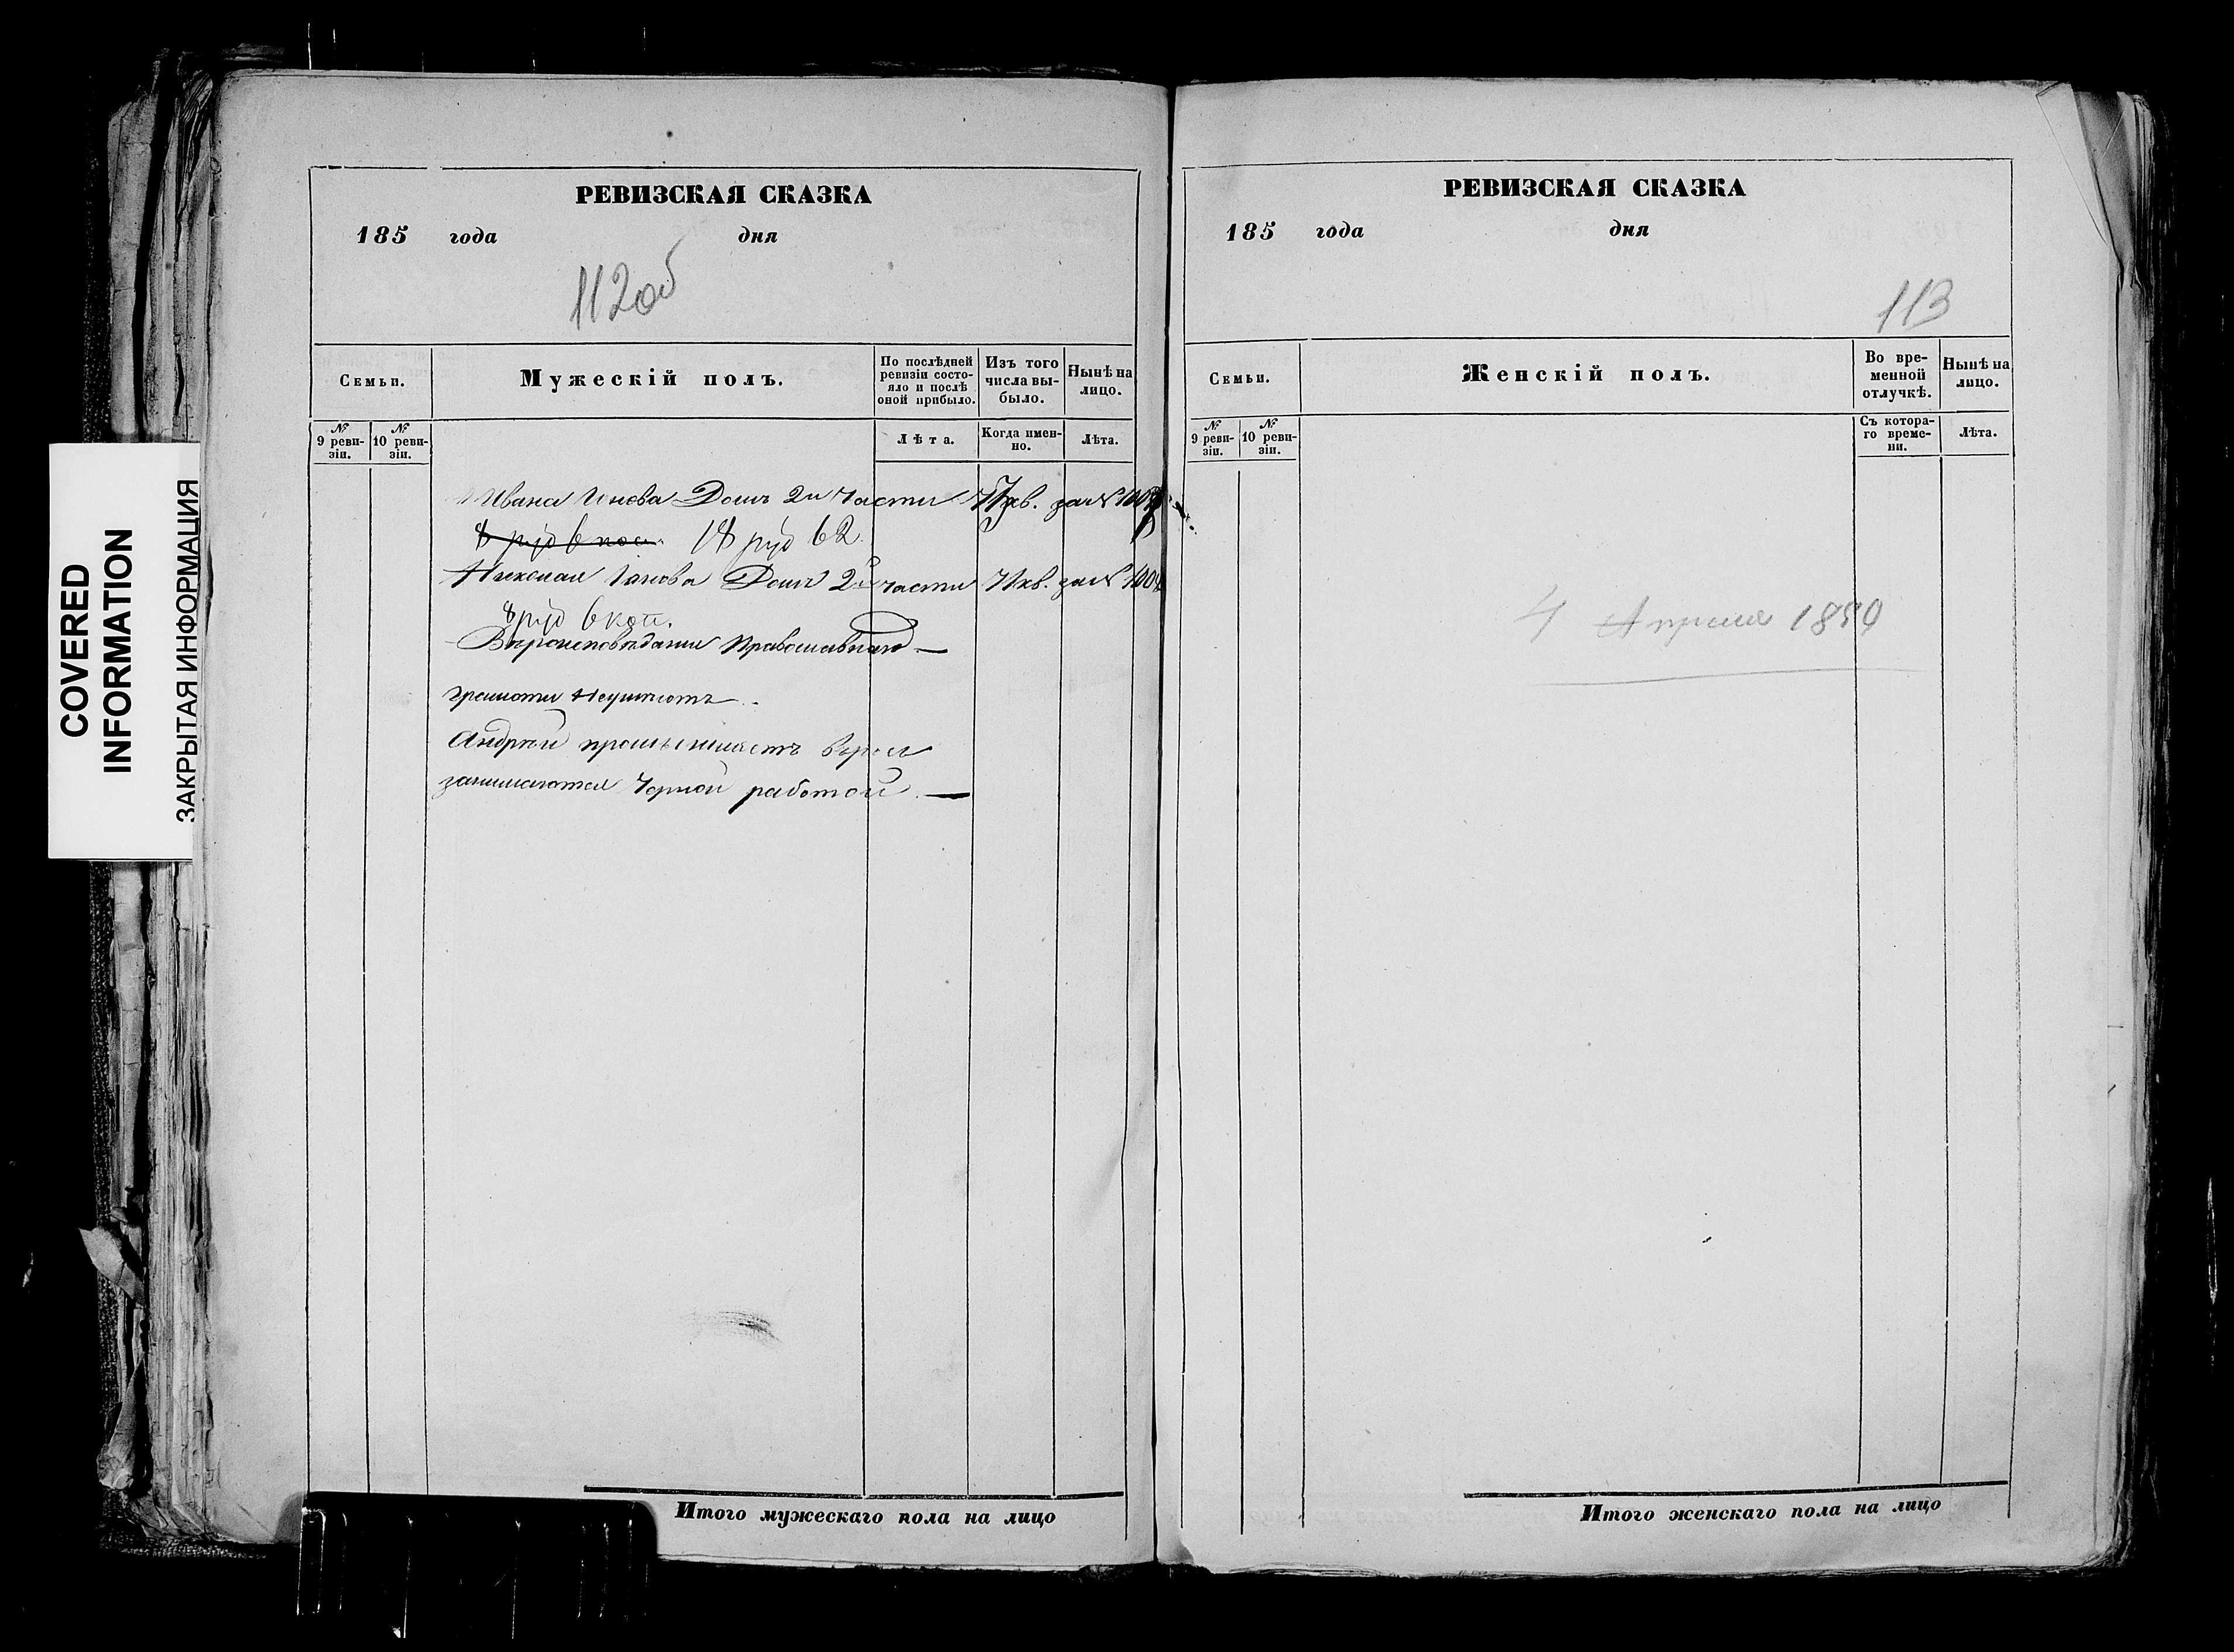 COVERED
INFORMATION
ЗАКРЫТАЯ ИНФОРМАЦИЯ
РЕВИЗСКАЯ СКАЗКА
185 года дня
112об
Семьи.
Мужескій полъ.
По послѣдней ревизіи состояло и послѣ оной прибыло.
Изъ того числа выбыло.
Нынѣ на лицо.
№ 9 ревизіи.
№ 10 ревизіи.
Лѣта.
Когда именно.
Лѣта.
Ивана Домъ 2й части кв. за №
8 руб 6 коп. 18 руб 62
Николая Домъ 2й части кв. за №
8 руб 6 коп.
Вѣроисповѣданія Православнаго
грамоты Неумѣютъ
Андрей
занимаются Чорной работой.
Итого мужескаго пола на лицо
РЕВИЗСКАЯ СКАЗКА
185 года дня
113
Семьи.
Женскій полъ.
Во временной отлучкѣ.
Нынѣ на лицо.
№ 9 ревизіи.
№ 10 ревизіи.
Съ котораго времени.
Лѣта.
4 Апреля
Итого женскаго пола на лицо